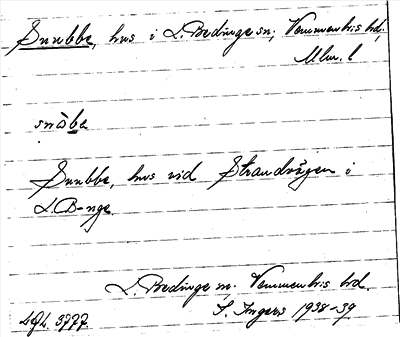 Snubbe, hus i L. Bedinge sn, Vemmenhös hd,
Mlm. l
snöbe
Snubbe, hus vid Strandvägen i
L.B-nge.
L. Bedinge sn. Vemmenh:s hd.
S. Ingers 1938-39
3777